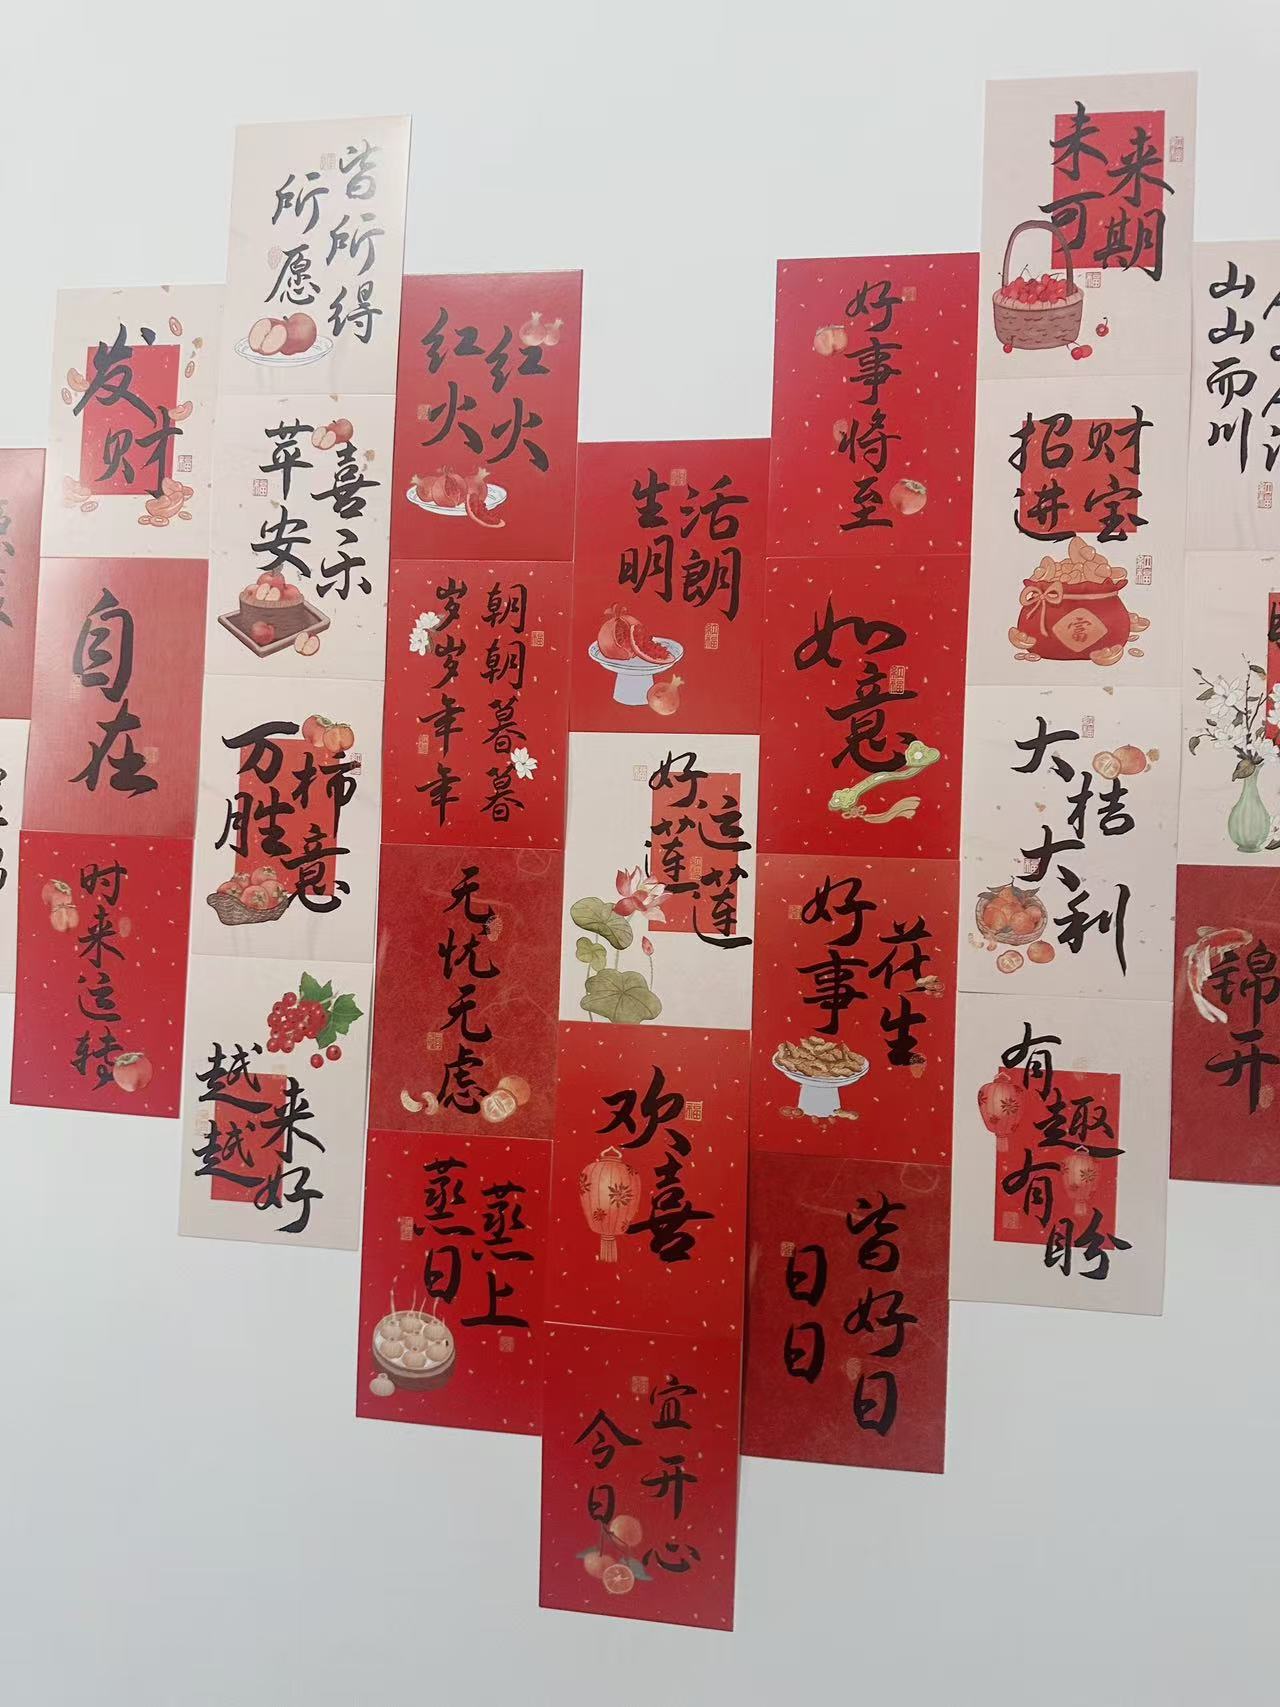 发财
自在
时来运转
所愿皆所得
苹安喜乐
万柿胜意
越来越好
红红火火
岁岁年年
朝朝暮暮
无忧无虑
蒸蒸日上
生活明朗
好运莲莲
欢喜
今日宜开心
好事将至
如意
好事花生
日日皆好日
未来可期
招财进宝
富
大桔大利
有趣有盼
山山而川
锦
开